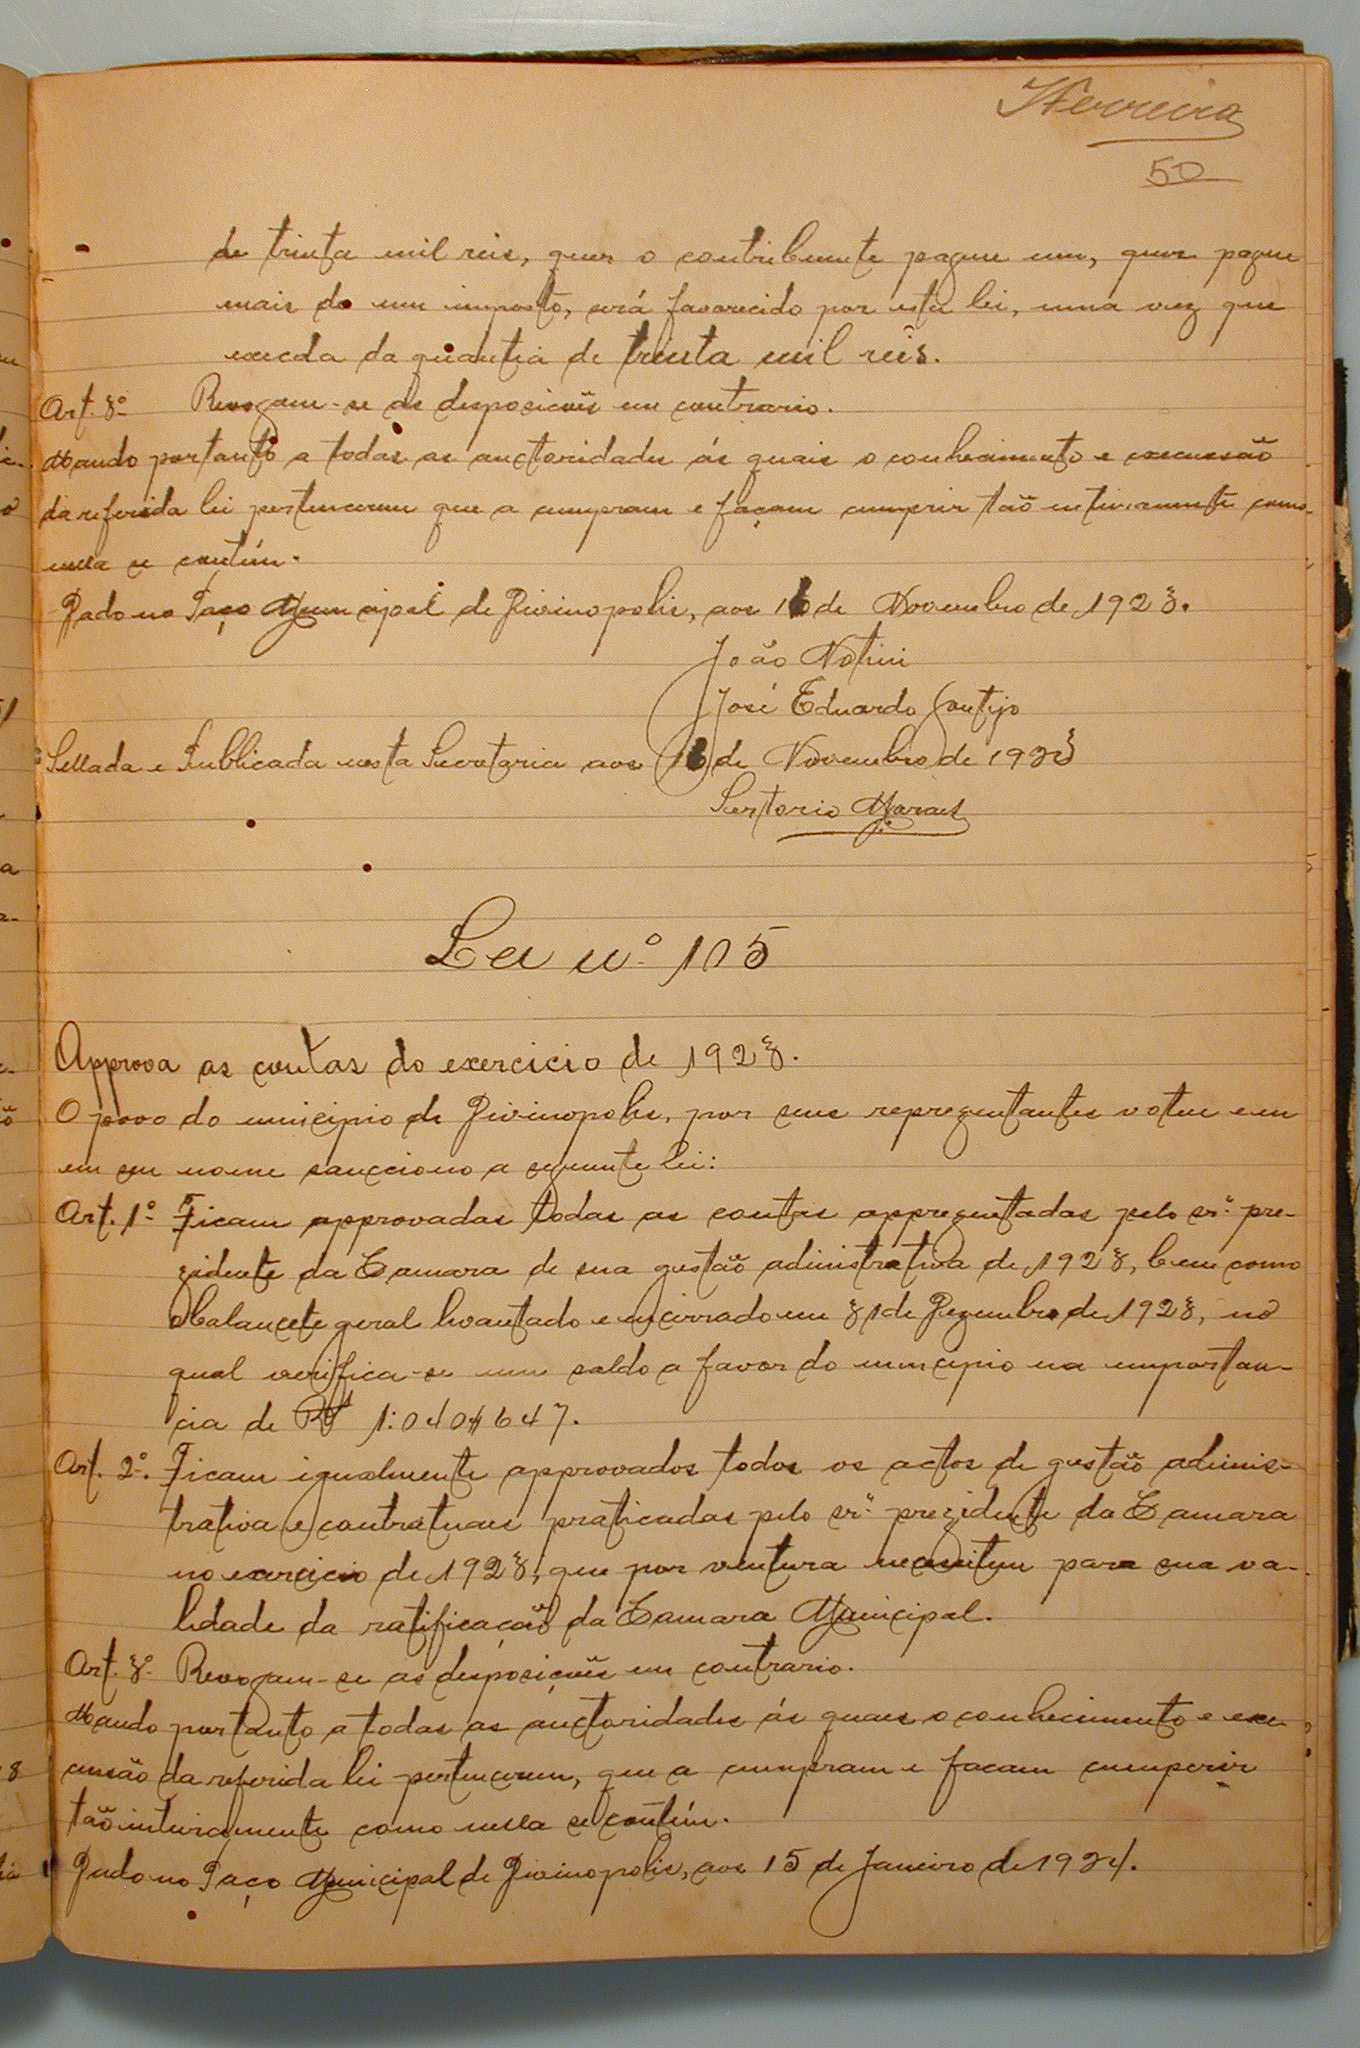 JFerreira
50
de trinta mil reis, quer o contribuinte pague um, quer pague
mais do um imposto, será favorecido por esta lei, uma vez que
exceda da quantia de trinta mil reis.
Art. 3º Revogam-se as desposicões em contrario.
Mando portanto a todas as auctoridades ás quais o conhecimento e execussão
da referida lei pertencerem que a cumpram e façam cumprir tão inteiramente como
nella se contém.
Dado no Paço Municipal de Divinopolis, aos 16 de Novembro de 1923.
João Notini
José Eduardo Gontijo
Sellada e Publicada nesta Secretaria aos 16 de Novembro de 1923
Sertorio Moraes
Lei nº 105
Approva as contas do exercicio de 1923.
O povo do municipio de Divinopolis, por seus reprezentantes votou e eu
em seu nome sancciono a seguinte lei:
Art. 1º Ficam approvadas todas as contas apprezentadas pelo sr. pre-
zidente da Camara de sua gestão adinistrativa de 1923, bem como
o balancete geral levantado e encerrado em 31 de Dezembro de 1923, no
qual verifica-se um saldo a favor do municipio na importan-
cia de Rs 1:040$647.
Art. 2º. Ficam igualmente approvados todos os actos de gestão adminis-
trativa e contratuaes praticadas pelo sr. prezidente da Camara
no exercicio de 1923, que por ventura necessitem para sua va-
lidade da ratificação da Camara Municipal.
Art. 3º Revogam-se as desposições em contrario.
Mando portanto a todas as auctoridades ás quaes o conhecimento e exe-
cussão da referida lei pertencerem, que a cumpram e facam cumperir
tão inteiramente como nella se contém.
Dado no Paço Municipal de Divinopolis, aos 15 de Janeiro de 1924.